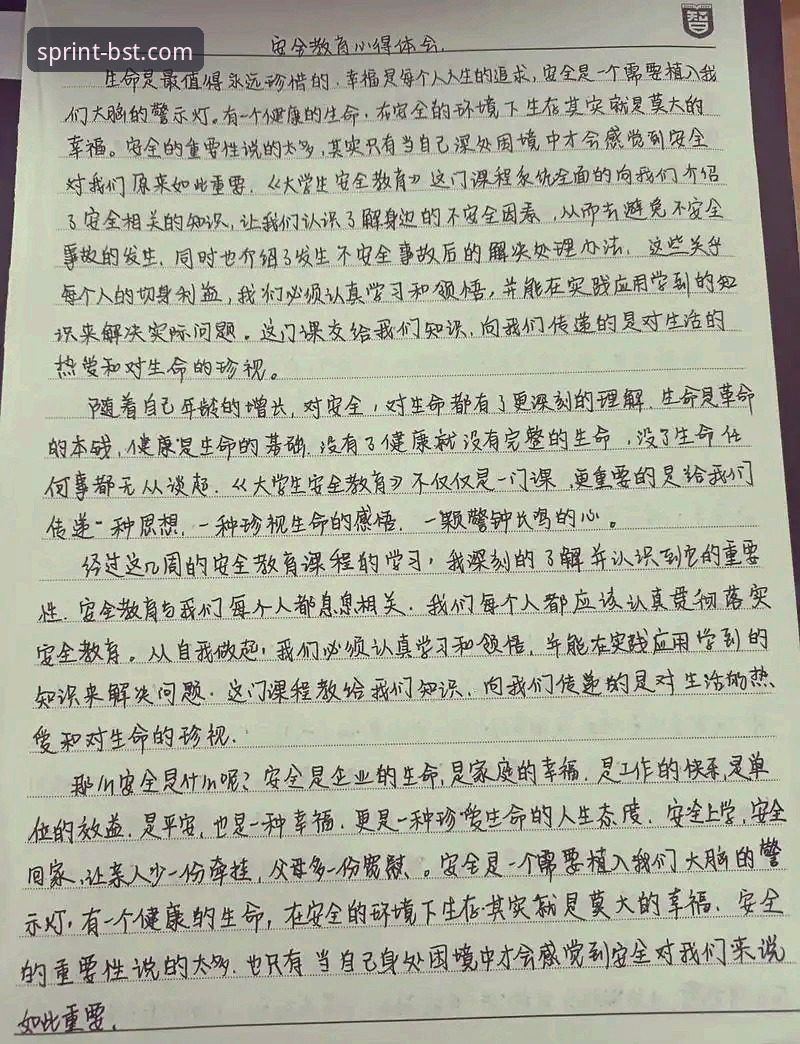 智
sprint-bst.com
安全教育心得体会.
生命是最值得永远珍惜的.幸福是每个人人生的追求,安全是一个需要植入我
们大脑的警示灯。有一个健康的生命.在安全的环境下生存其实就是莫大的
幸福。安全的重要性说的太多,其实只有当自己深处困境中才会感觉到安全
对我们原来如此重要.《大学生安全教育》这门课程系统全面的向我们介绍
了安全相关的知识,让我们认识了解身边的不安全因素,从而去避免不安全
事故的发生.同时也介绍了发生不安全事故后的解决处理办法.这些关乎
每个人的切身利益,我们必须认真学习和领悟,并能在实践应用学到的知
识来解决实际问题。这门课交给我们知识.向我们传递的是对生活的
热爱和对生命的珍视。
随着自己年龄的增长,对安全,对生命都有了更深刻的理解.生命是革命
的本钱,健康是生命的基础.没有了健康就没有完整的生命,没了生命任
何事都无从谈起.《大学生安全教育》不仅仅是一门课,更重要的是给我们
传递一种思想.一种珍视生命的感悟.一颗警钟长鸣的心。
经过这几周的安全教育课程的学习,我深刻的了解并认识到它的重要
性.安全教育与我们每个人都息息相关.我们每个人都应该认真贯彻落实
安全教育。从自我做起,我们必须认真学习和领悟.并能在实践应用学到的
知识来解决问题.这门课程教给我们知识.向我们传递的是对生活的热
爱和对生命的珍视.
那么安全是什么呢?安全是企业的生命,是家庭的幸福.是工作的快乐,是单
位的效益.是平安,也是一种幸福.更是一种珍爱生命的人生态度.安全上学,安全
回家,让亲人少一份牵挂,父母多一份宽慰、。安全是一个需要植入我们大脑的警
示灯,有一个健康的生命,在安全的环境下生存.其实就是莫大的幸福.安全
的重要性说的太多.也只有当自己身处困境中才会感觉到安全对我们来说
如此重要.